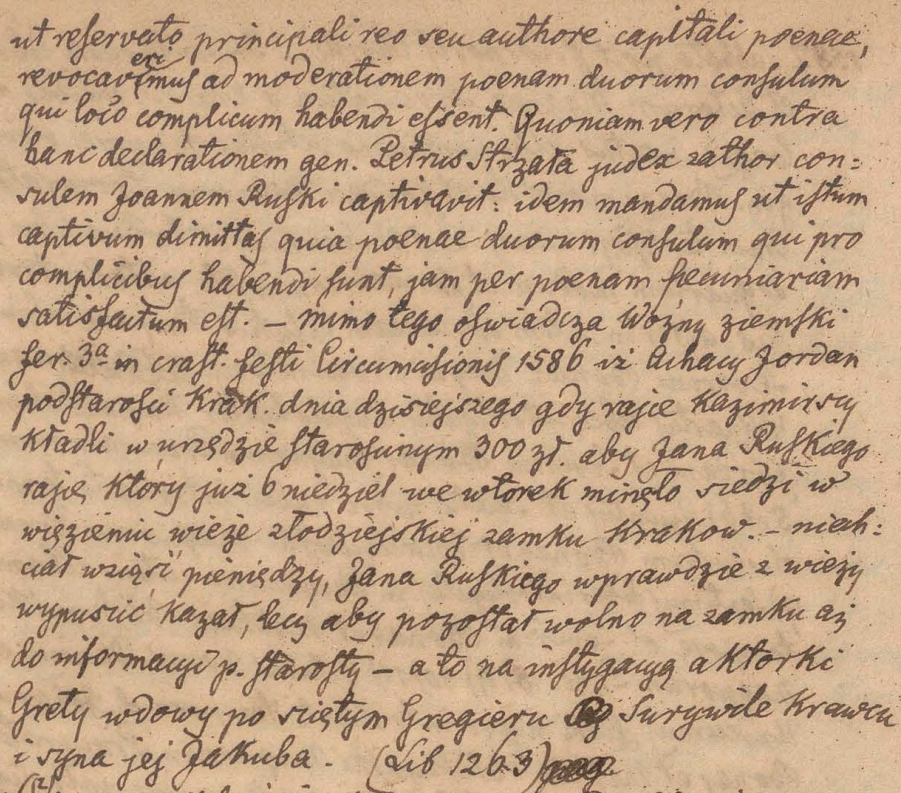 ut reservato principali reo seu authore capitali poenae,
revocaverimus ad moderationem poenam duorum consulum
qui loco complicum habendi essent. Quoniam vero contra
hanc declarationem gen. Petrus Strzała judex zathor con=
sulem Joannem Ruski captivavit: idem mandamus ut istum
captivum dimittas quia poenae duorum consulum qui pro
complicibus habendi sunt, jam per poenam pecuniariam
satisfactum est. – mimo tego oswiadcza Woźny ziemski
fer. 3ª in crast. festi Circumcisionis 1586 iż Achacy Jordan
podstarości Krak. dnia dzisiejszego gdy rajce Kazimirscy
kładli w urzędzie starościnym 300 zł. aby Jana Ruskiego
rajcę, który już 6 niedziel we wtorek minęło siedzi w
więzieniu wieże złodziejskiej zamku Krakow. – niech=
ciał wziąść pieniędzy, Jana Ruskiego wprawdzie z wieży
wypuścić kazał, lecz aby pozostał wolno na zamku aż
do informacyi p. starosty – a to na instygacyą aktorki
Grety wdowy po ściętym Gregieru Surywile Krawcu
i syna jej Jakuba. (Lib 1263)